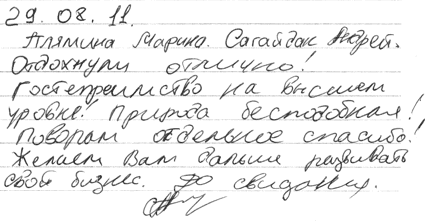 29.08.11.
Алямина Марина. Сагайдак Андрей.
Отдохнули отлично!
Гостеприимство на высшем
уровне! Природа бесподобная!
Поварам отдельное спасибо!
Желаем Вам дальше развивать
свой бизнес. До свидания.